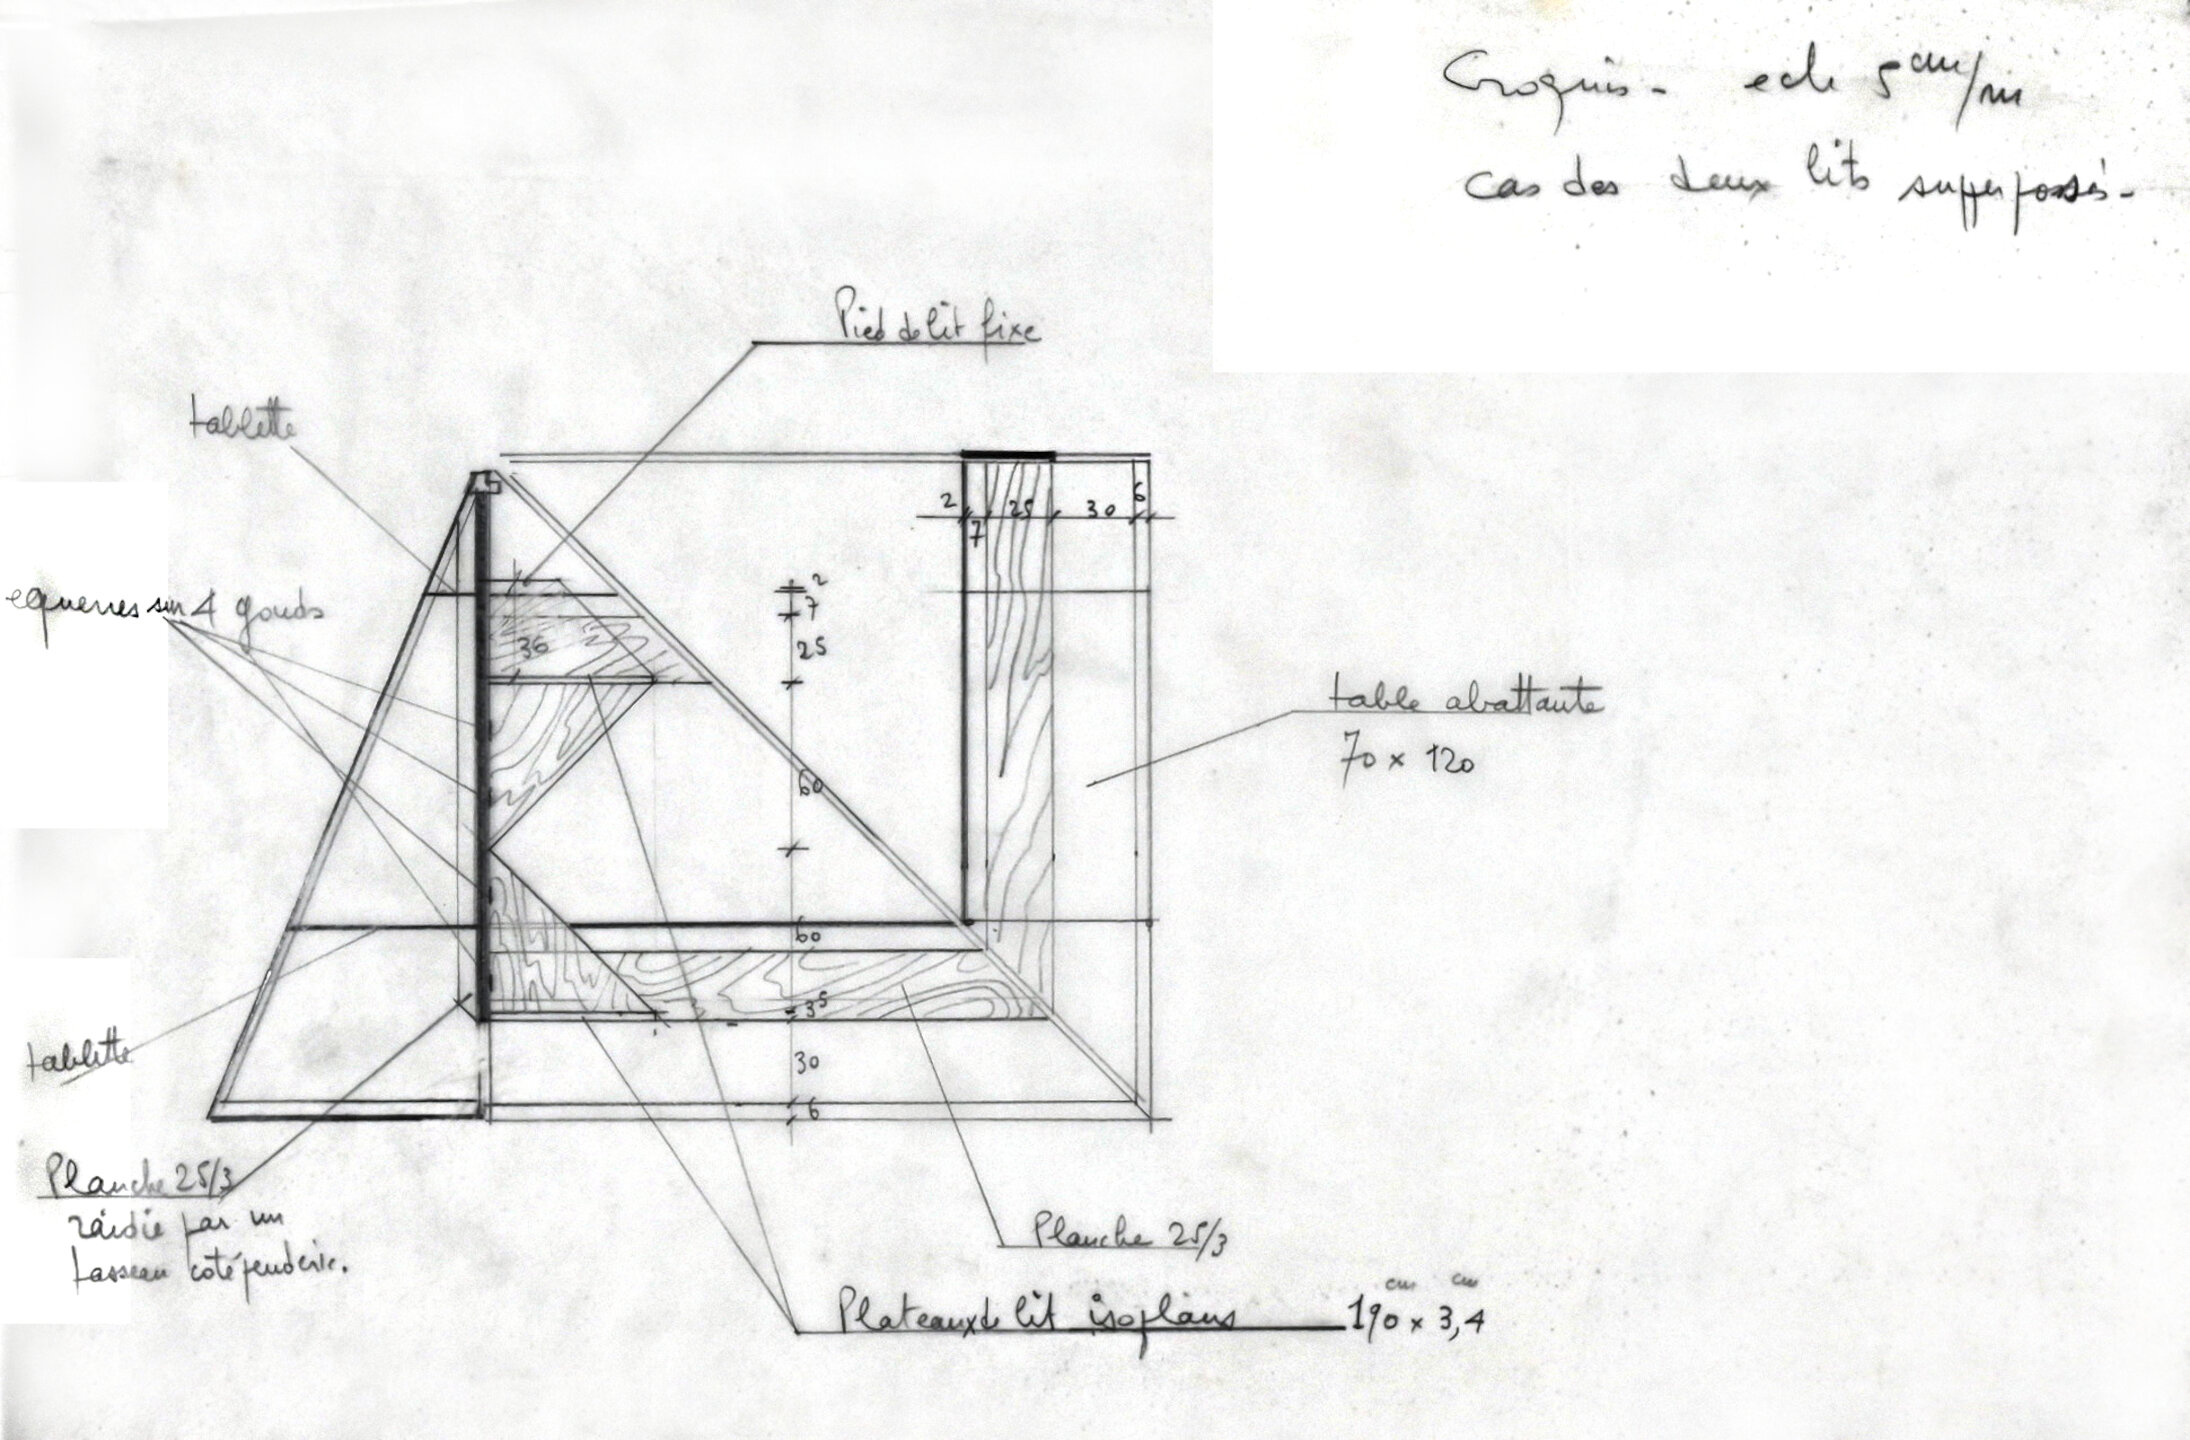 Croquis - ech 5 cm/m
cas des deux lits supperposés -
Pied de lit fixe
tablette
2
7
25
30
6
equerres sur 4 gonds
2
7
25
36
60
table abattante
70 x 120
60
35
30
6
tablette
Planche 25/3
raidie par un
tasseau coté penderie.
Planche 25/3
Plateaux de lit isoplans 190 cm x 3,4 cm